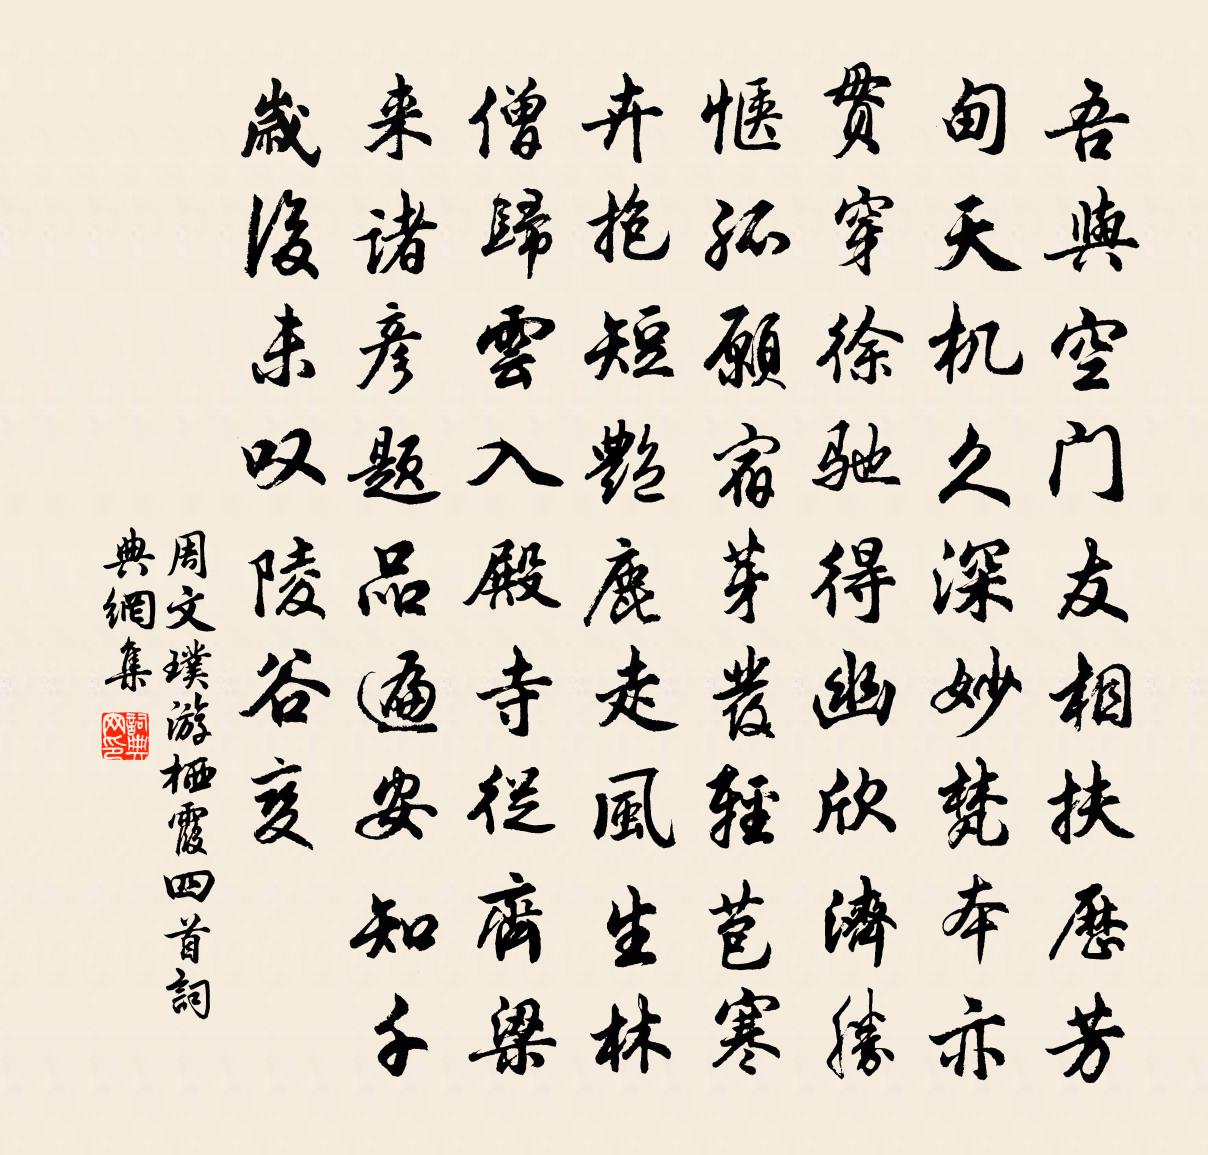 吾與空门友相扶歷芳
甸天机久深妙梵本亦
贯穿徐驰得幽欣濟勝
愜孤願宿芽發輕苞寒
卉抱短艷鹿走風生林
僧歸雲入殿寺從齊梁
来诸彦题品遍安知千
歲後未叹陵谷变
周文璞游栖霞四首詞
典網集
詞典网印